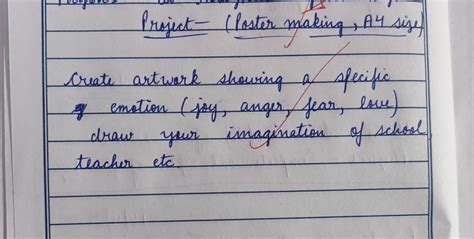 Project - (Poster making, A4 size)
Create artwork showing a specific
emotion (joy, anger, fear, love)
draw your imagination of school
teacher etc.